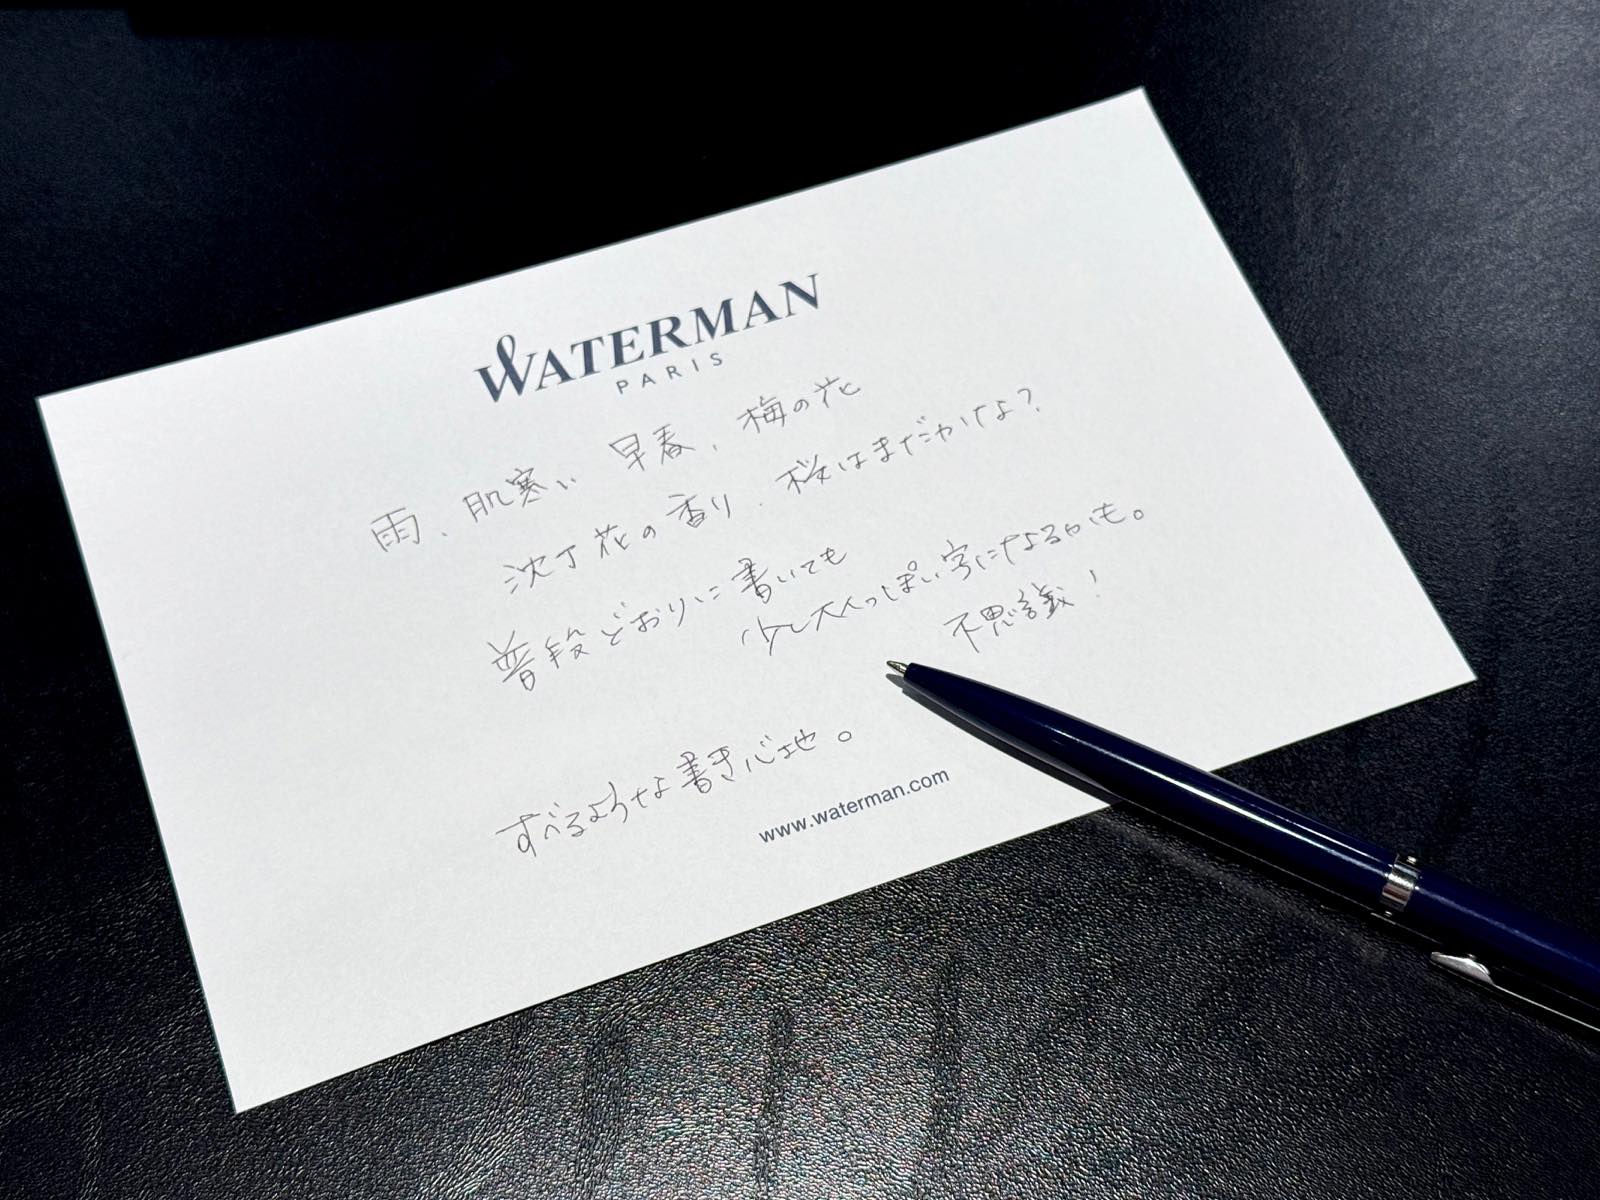 WATERMAN
PARIS
雨、肌寒い 早春、梅の花
沈丁花の香り、桜はまだかけよ?
普段どおりに書いても
少し大人っぽい字になるかも。
不思議!
すべるような書き心地。
www.waterman.com